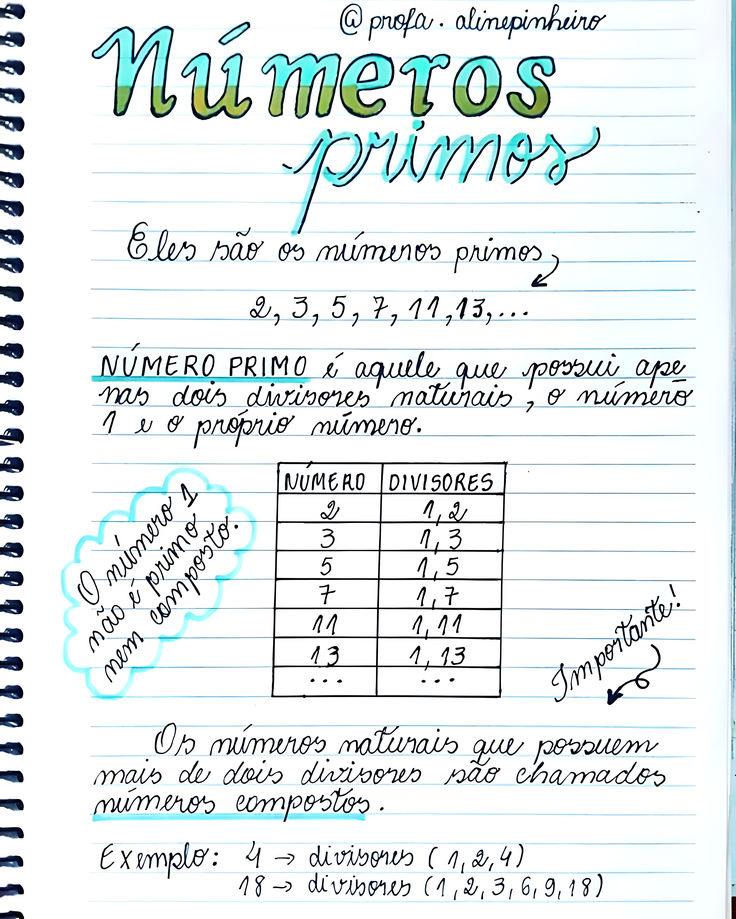 @profa.alinepinheiro
Números
primos
Eles são os números primos
2, 3, 5, 7, 11, 13, ...
NÚMERO PRIMO é aquele que possui ape
nas dois divisores naturais, o número
1 e o próprio número.
NÚMERO DIVISORES
2 1, 2
3 1, 3
5 1, 5
7 1, 7
11 1, 11
13 1, 13
... ...
O número 1
não é primo
nem composto.
Importante!
Os números naturais que possuem
mais de dois divisores são chamados
números compostos.
Exemplo: 4 → divisores (1, 2, 4)
18 → divisores (1, 2, 3, 6, 9, 18)